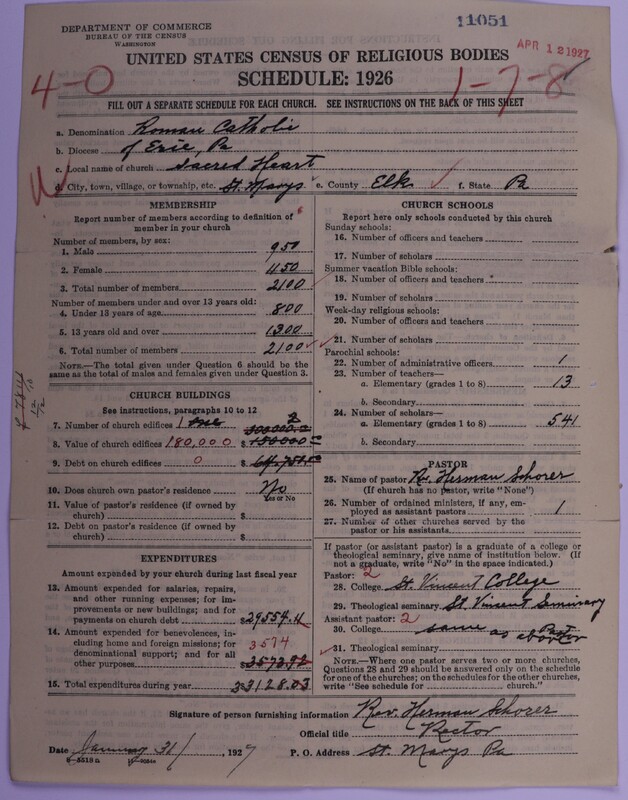 DEPARTMENT OF COMMERCE
BUREAU OF THE CENSUS
WASHINGTON
11051
APR 12 1927
UNITED STATES CENSUS OF RELIGIOUS BODIES
SCHEDULE: 1926
4-0
1-7-8
FILL OUT A SEPARATE SCHEDULE FOR EACH CHURCH. SEE INSTRUCTIONS ON THE BACK OF THIS SHEET
a. Denomination Roman Catholic
b. Diocese of Erie, Pa
c. Local name of church Sacred Heart
d. City, town, village, or township, etc. St. Marys e. County Elk f. State Pa
MEMBERSHIP
Report number of members according to definition of member in your church
Number of members, by sex:
1. Male 950
2. Female 1150
3. Total number of members 2100
Number of members under and over 13 years old:
4. Under 13 years of age 800
5. 13 years old and over 1300
6. Total number of members 2100
NOTE.—The total given under Question 6 should be the same as the total of males and females given under Question 3.
CHURCH BUILDINGS
See instructions, paragraphs 10 to 12
7. Number of church edifices 1
8. Value of church edifices 180,000 $
9. Debt on church edifices 0 $
10. Does church own pastor's residence No
Yes or No
11. Value of pastor's residence (if owned by church) $
12. Debt on pastor's residence (if owned by church) $
EXPENDITURES
Amount expended by your church during last fiscal year
13. Amount expended for salaries, repairs, and other running expenses; for improvements or new buildings; and for payments on church debt $29554.11
14. Amount expended for benevolences, including home and foreign missions; for denominational support; and for all other purposes 3574 3573.92
15. Total expenditures during year 33128.03
CHURCH SCHOOLS
Report here only schools conducted by this church
Sunday schools:
16. Number of officers and teachers
17. Number of scholars
Summer vacation Bible schools:
18. Number of officers and teachers
19. Number of scholars
Week-day religious schools:
20. Number of officers and teachers
21. Number of scholars
Parochial schools:
22. Number of administrative officers 1
23. Number of teachers—
a. Elementary (grades 1 to 8) 13
b. Secondary
24. Number of scholars—
a. Elementary (grades 1 to 8) 541
b. Secondary
PASTOR
25. Name of pastor Rev. Herman Schorer
(If church has no pastor, write "None")
26. Number of ordained ministers, if any, employed as assistant pastors 1
27. Number of other churches served by the pastor or his assistants
If pastor (or assistant pastor) is a graduate of a college or theological seminary, give name of institution below. (If not a graduate, write "No" in the space indicated.)
Pastor: 2
28. College St. Vincent College
29. Theological seminary St. Vincent Seminary
Assistant pastor: 2
30. College same as
31. Theological seminary
NOTE.—Where one pastor serves two or more churches, Questions 28 and 29 should be answered only on the schedule for one of the churches; on the schedules for the other churches, write "See schedule for church."
Signature of person furnishing information Rev. Herman Schorer
Official title Rector
Date January 31, 1927 P. O. Address St. Marys Pa